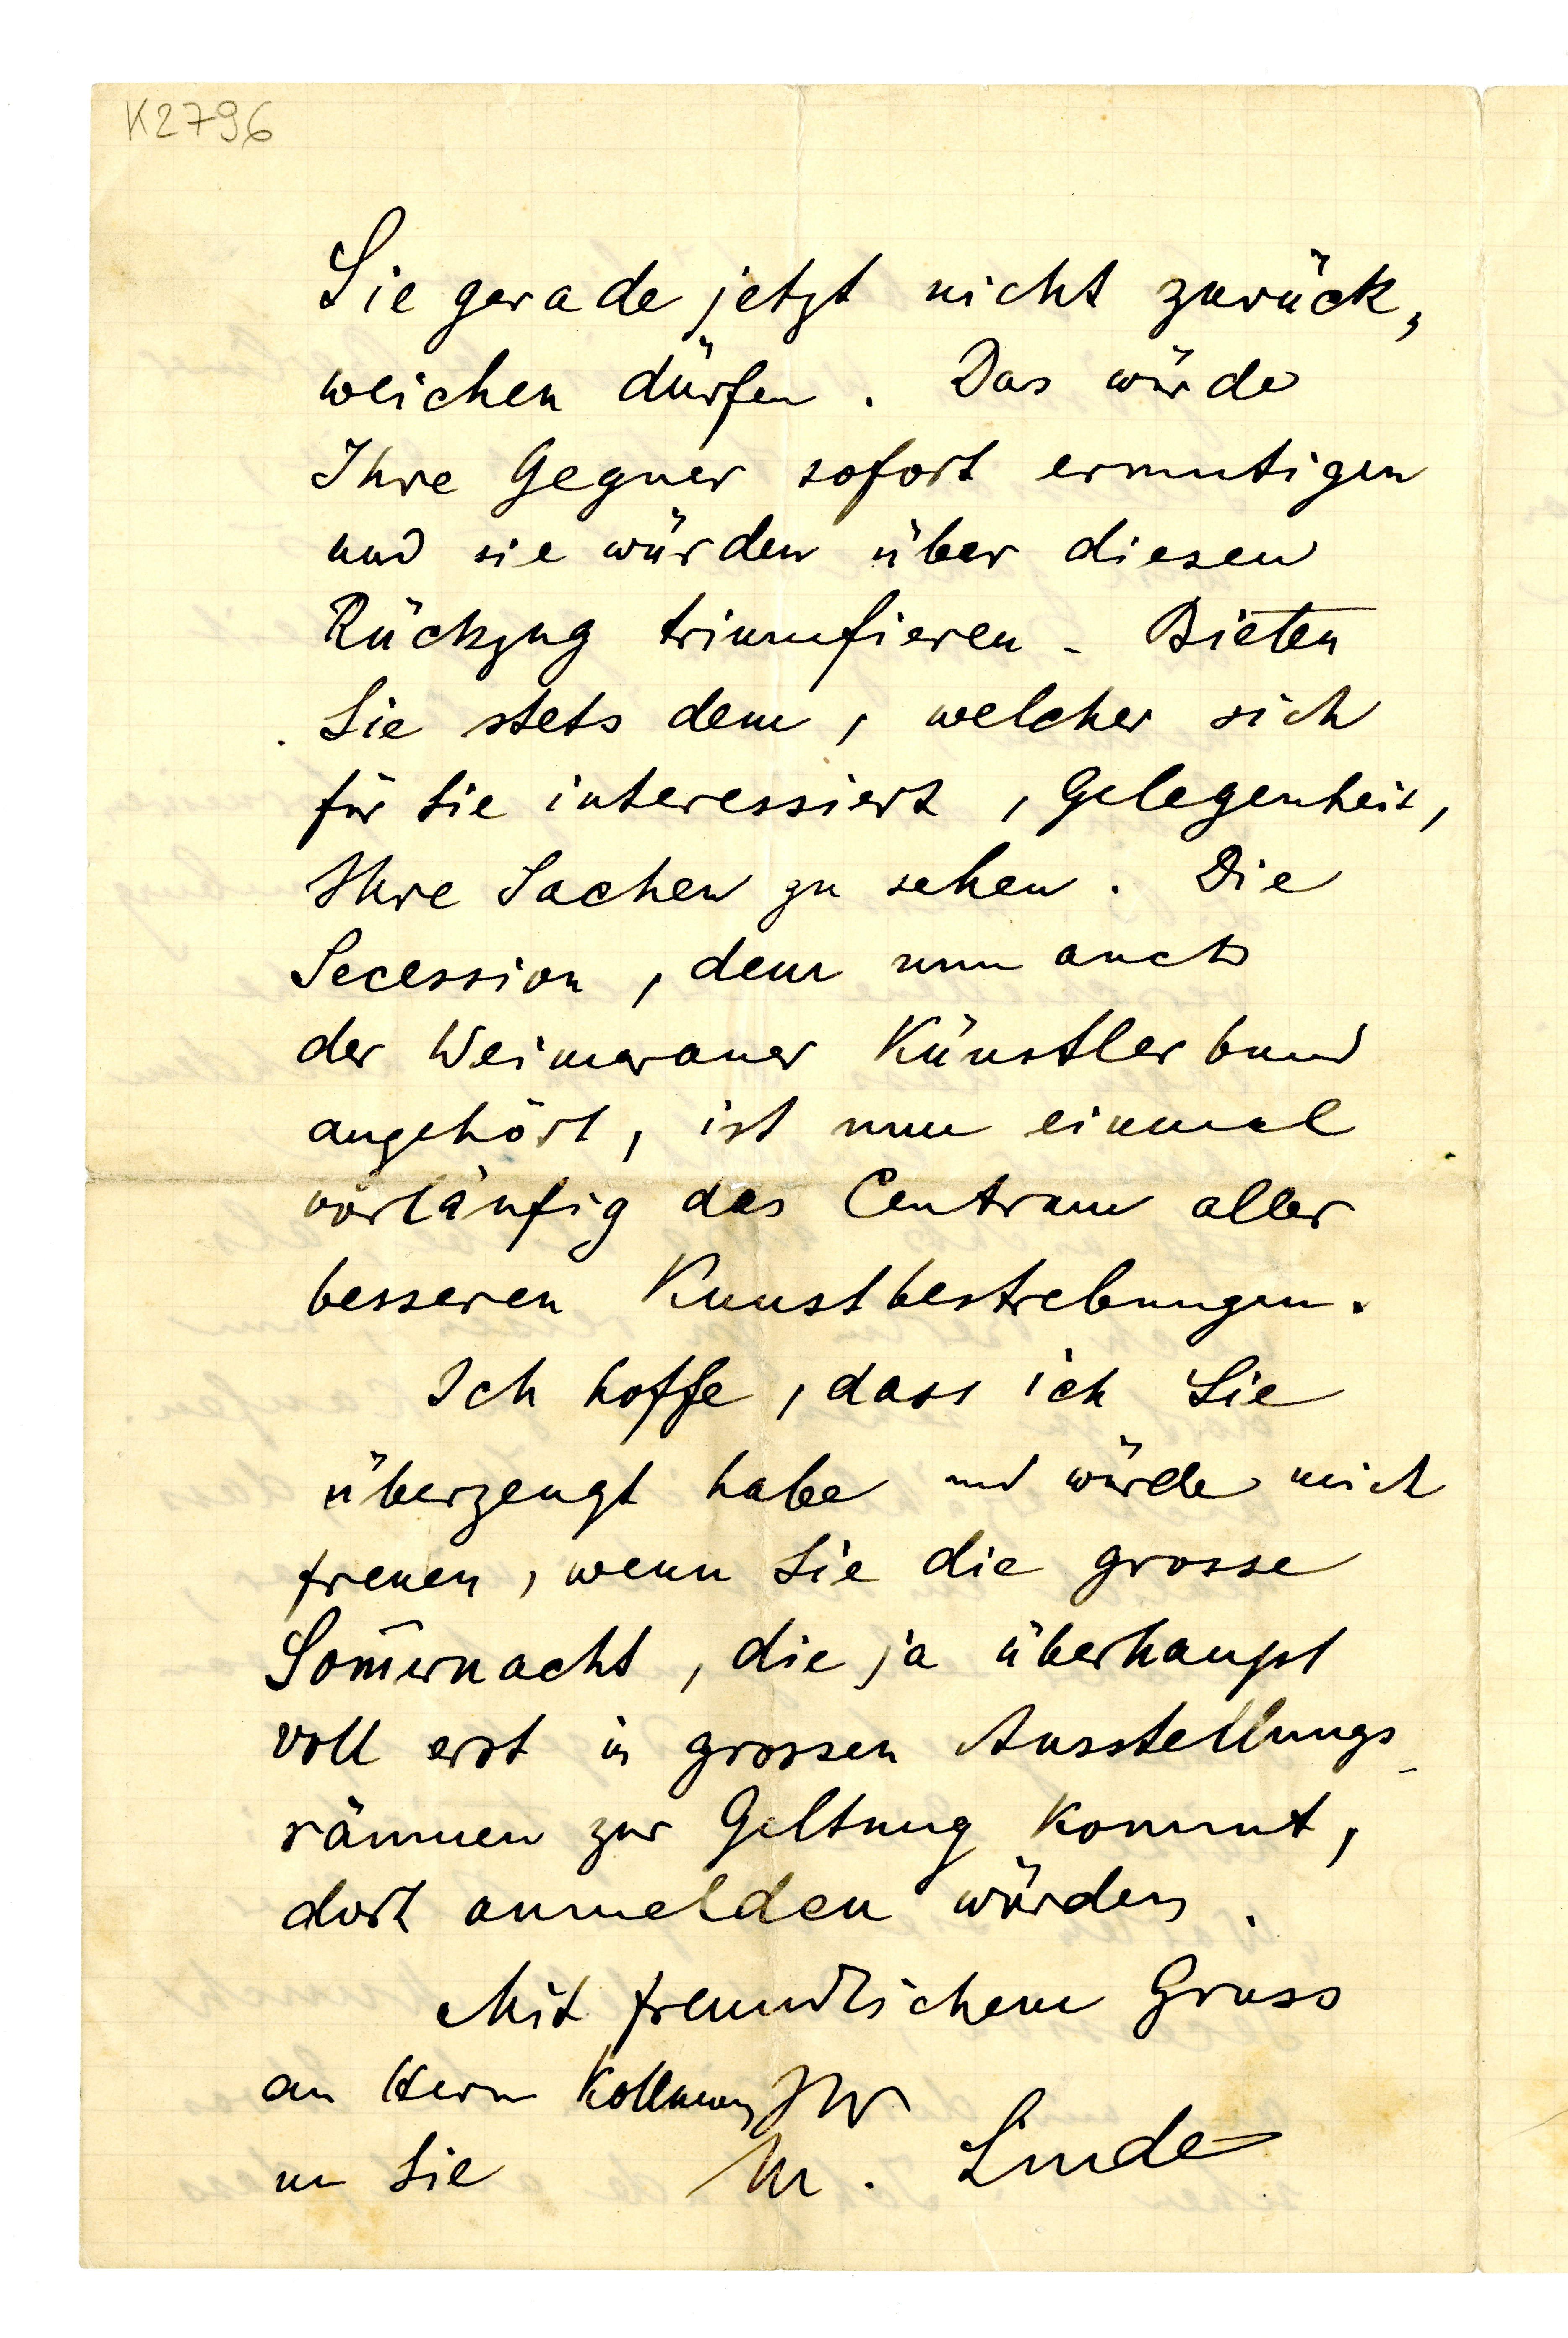 K2796
Sie gerade jetzt nicht zurück,
weichen dürfen. Das würde
Ihre Gegner sofort ermutigen
und sie würden über diesen
Rückzug triumfieren - Bieten
Sie stets dem, welcher sich
für Sie interessiert, Gelegenheit,
Ihre Sachen zu sehen. Die
Secession, dem nun auch
der Weimaraner Künstlerbund
angehört, ist nun einmal
vorläufig das Centrum aller
besseren Kunstbestrebungen.
Ich hoffe, dass ich Sie
überzeugt habe und würde mich
freuen, wenn Sie die grosse
Som̄ernacht, die ja überhaupt
voll erst in grossen Ausstellungs-
räumen zur Geltung kommt,
dort anmelden würden.
Mit freundlichem Gruss
an Herrn Kollmann Ihr
un Sie M. Linde